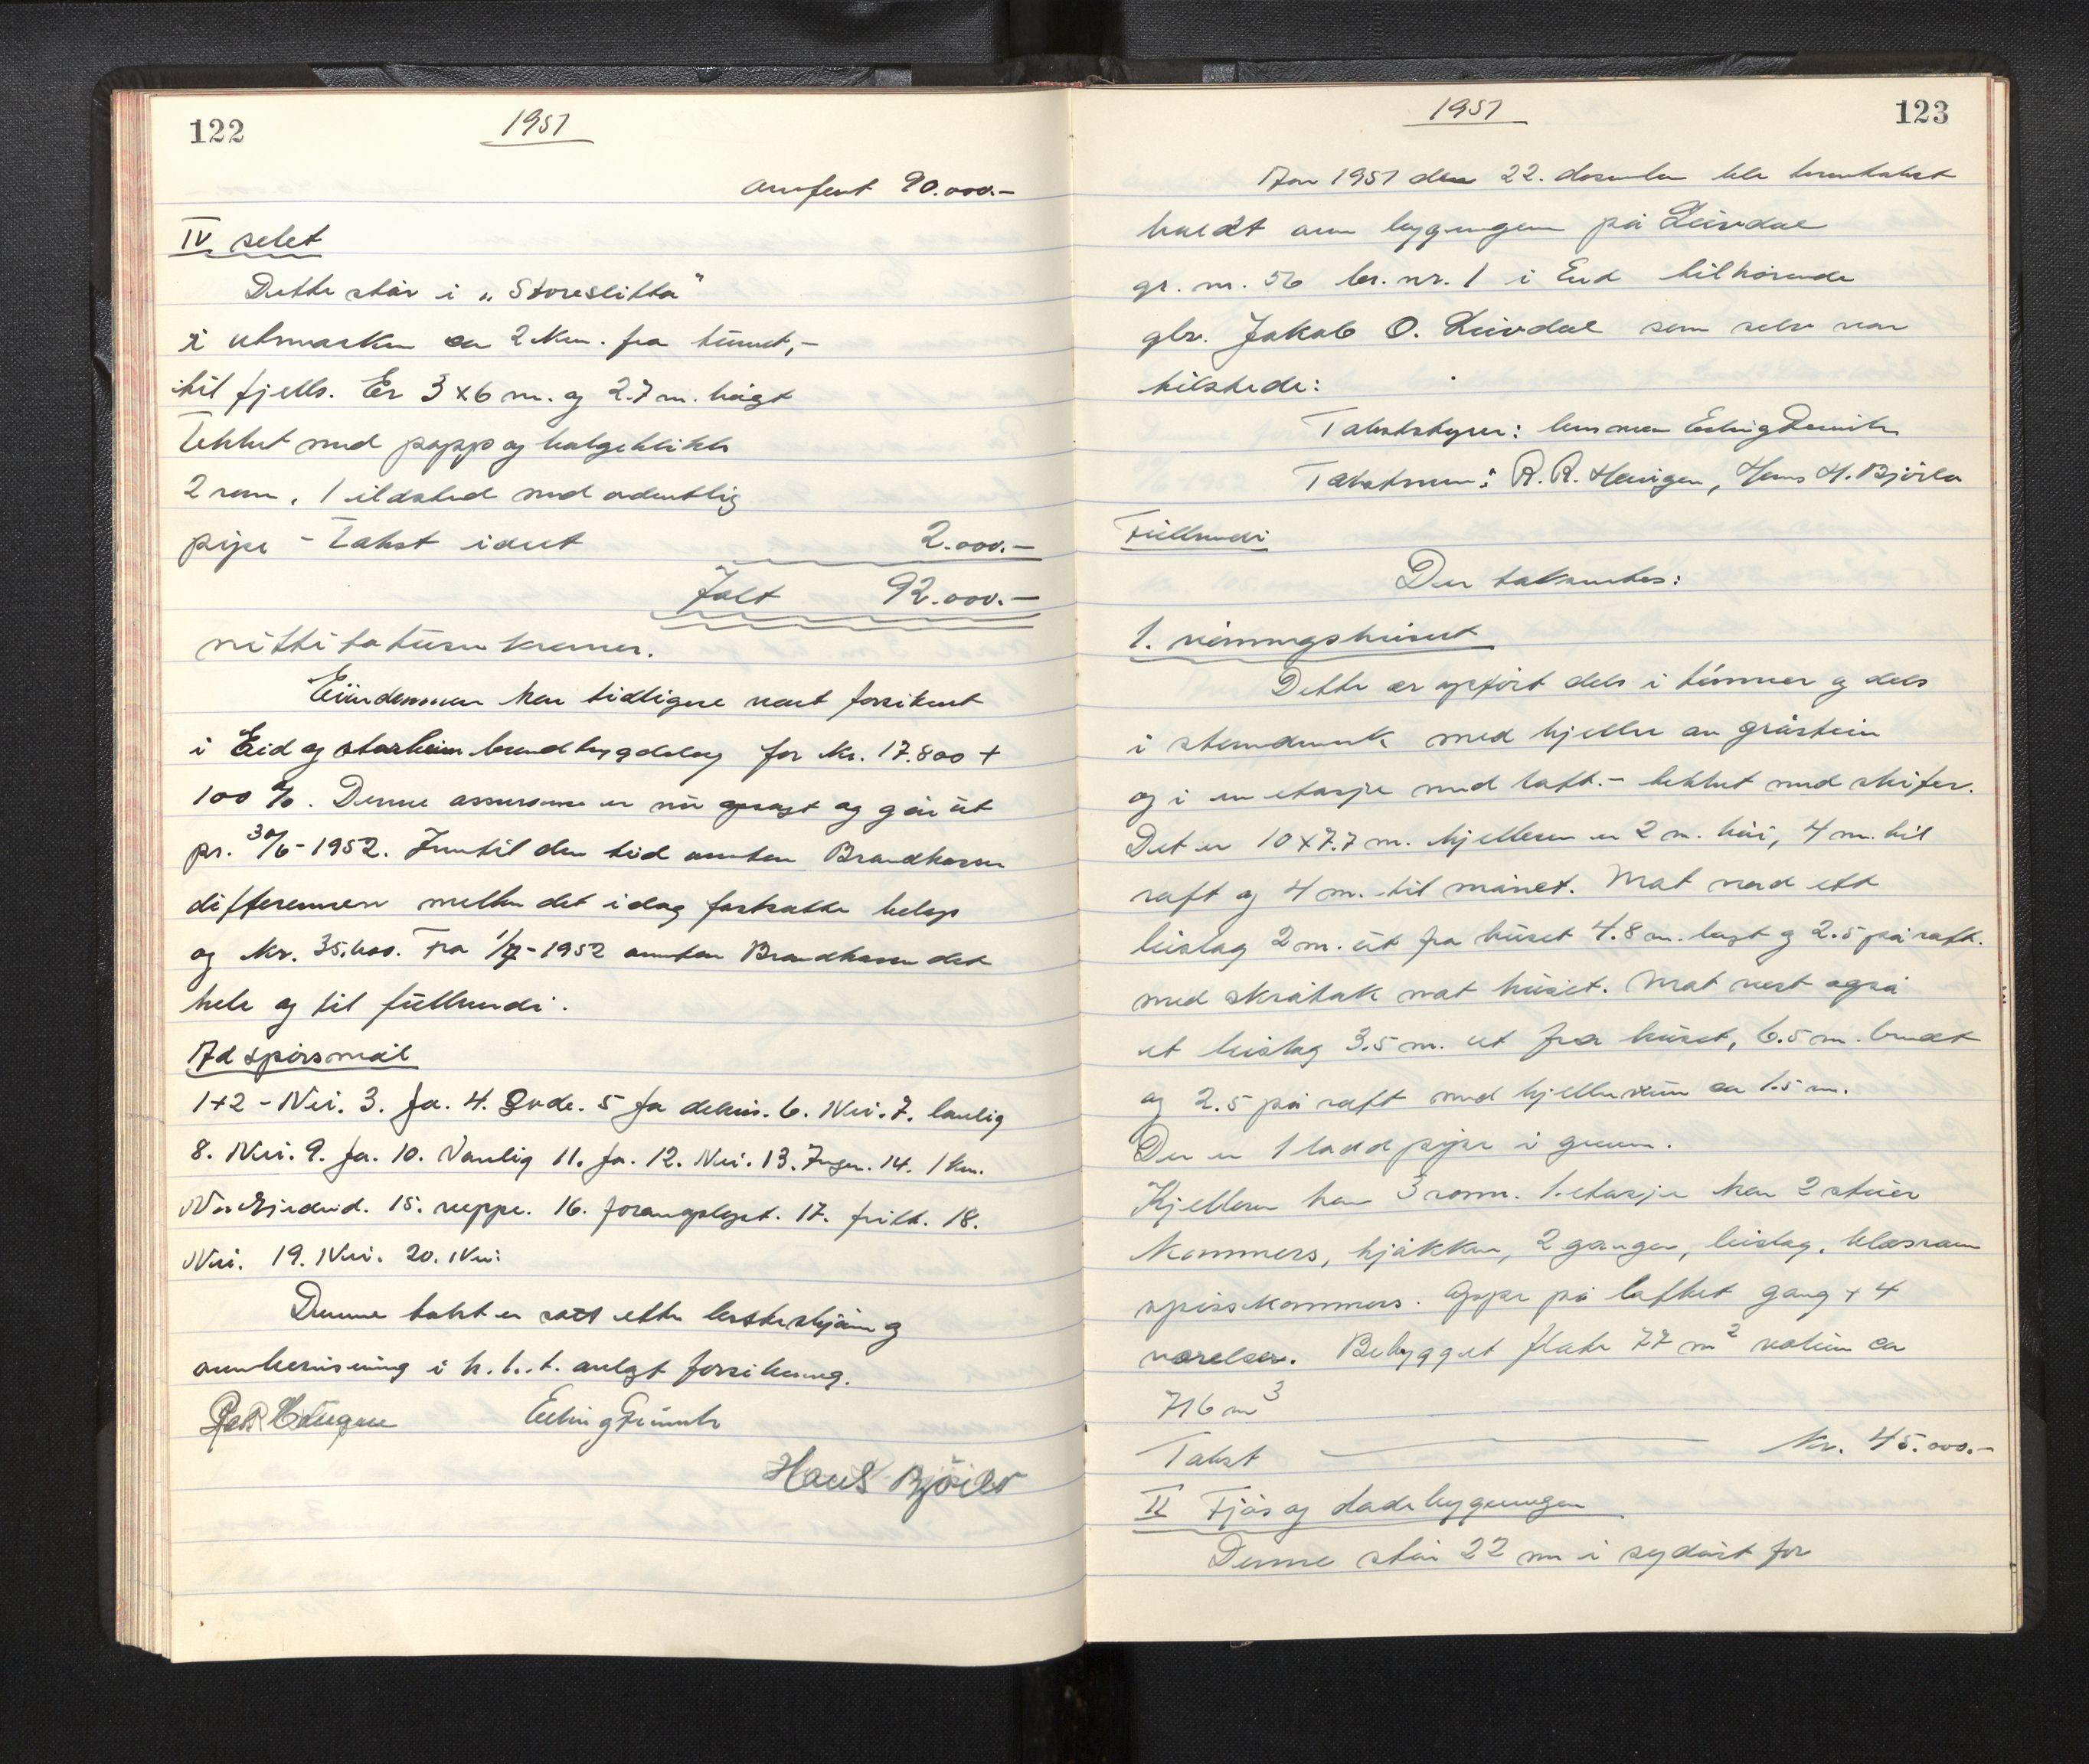 122
1951
overført 90.000.-
IV selet
Dette står i "Storeslitta"
i utmarken ca 2 km. fra tunet,-
til fjells. Er 3x6 m. og 2.7 m. høgt
Tekket med papp og bølgeblikk
2 rom. 1 ildsted med ordentlig
pipe - Takst idest 2.000.-
Ialt 92.000.-
nittitotusen kroner.
Eiendommen har tidligere vært forsikret
i Eid og Starheim brandbygdelag for kr. 17.800 +
100 %. Denne assuranse er nu opsagt og går ut
pr. 30/6-1952. Inntil den tid overtar Brandkassen
differensen mellem det idag fastsatte beløp
og kr. 35.600. Fra 1/7-1952 overtar Brandkassen det
hele og til fullverdi.
Ad spørsmål
1+2 - Nei. 3. Ja. 4. Gode. 5 Ja delvis. 6. Nei. 7. Vanlig
8. Nei. 9. Ja. 10. Vanlig 11. Ja. 12. Nei. 13. Ingen. 14. 1 km.
15. neppe. 16. forangslyst. 17. fritt. 18.
Nei. 19. Nei. 20. Nei.
Denne takst er satt etter beste skjønn og
overbevisning i h. t. t. avlagt forsikring.
R. R. Haugen Erling
Hans Bjørlo
1951
123
År 1951 den 22. desember ble branntakst
holdt over bygningen på Leivdal
gr. nr. 56 br. nr. 1 i Eid tilhørende
gbr. Jakob O. Leivdal som selv var
tilstede:
Takstbestyrer: lensmann Erling
Takstmenn: R. R. Haugen, Hans H. Bjørlo
Fullverdi
Der takseretes:
1. våningshuset
Dette er opført dels i tømmer og dels
i stenderverk med kjeller av gråstein
og i en etasje med loft.- tekket med skifer.
Det er 10x7.7 m. kjelleren er 2 m. høi, 4 m. til
raft og 4 m. til mønet. Mot nord ett
bislag 2 m. ut fra huset 4.8 m. langt og 2.5 på raft.
med skråtak mot huset. Mot vest også
et bislag 3.5 m. ut fra huset, 6.5 m. bredt
og 2.5 på raft med kjellerrum ca 1.5 m.
Der er 1 lodd pipe i grunn.
Kjelleren har 3 rom. 1. etasje har 2 stuer
kammers, kjøkken, 2 ganger, bislag, klesrom
spisskammers. Oppe på loftet gang + 4
værelser. Bebygget flate 77 m² volum ca
716 m³
Takst kr. 45.000.-
II Fjøs og ladebygningen
Denne står 22 m i sydøst for